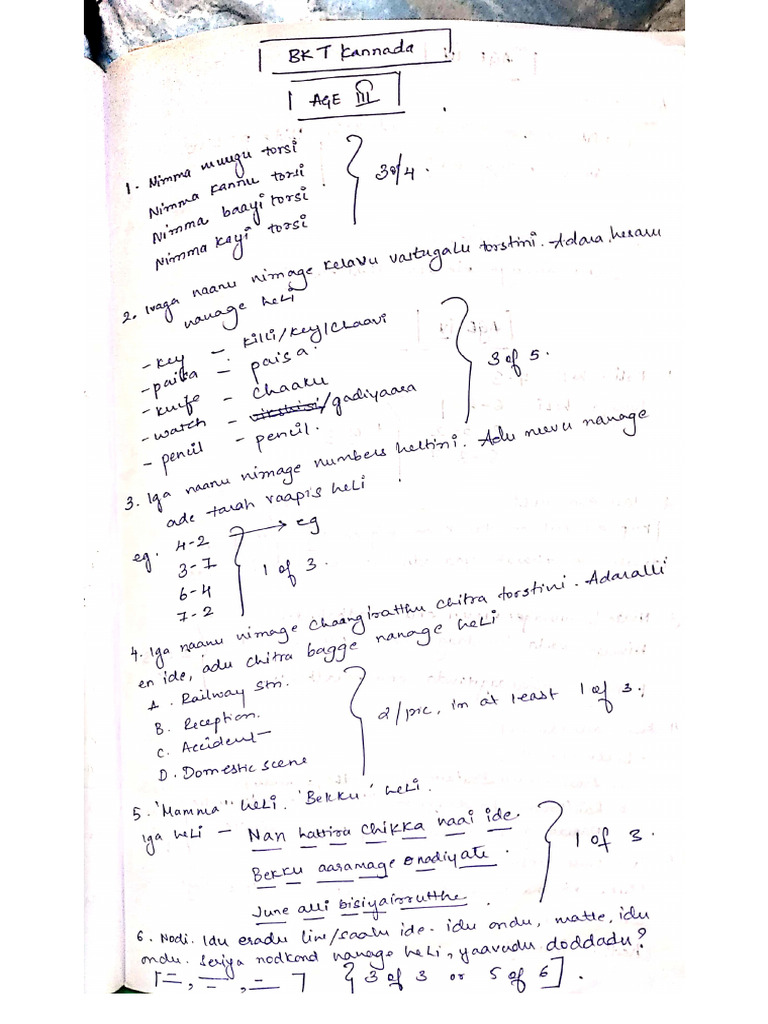 BKT Kannada
AGE III
1. Nimma muugu torsi
Nimma kannu torsi
Nimma baayi torsi
Nimma kayi torsi
3 of 4.
2. Ivaga naanu nimage kelavu vastugalu torstini. Adara hesaru
nanage heli
- key - killi/key/chaavi
- paisa - paisa.
- knife - chaaku
- watch - /gadiyaara
- pencil - pencil.
3 of 5.
3. Iga naanu nimage numbers heltini. Adu neevu nanage
ade tarah vaapis heli
eg. 4-2 → eg
3-7
6-4
7-2
1 of 3.
4. Iga naanu nimage chitra torstini. Adaralli
en ide, adu chitra bagge nanage heli
A. Railway Stn.
B. Reception.
C. Accident
D. Domestic scene
2/pic, in at least 1 of 3.
5. 'Mamma' heli. 'Bekku' heli.
Iga heli - Nan hattira chikka naai ide.
Bekku aaramage
June alli
1 of 3.
6. Nodi. Idu eradu line/saalu ide. idu ondu, matte, idu
ondu. Seriya nodkond nanage heli, yaavudu doddadu?
{3 of 3 or 5 of 6].